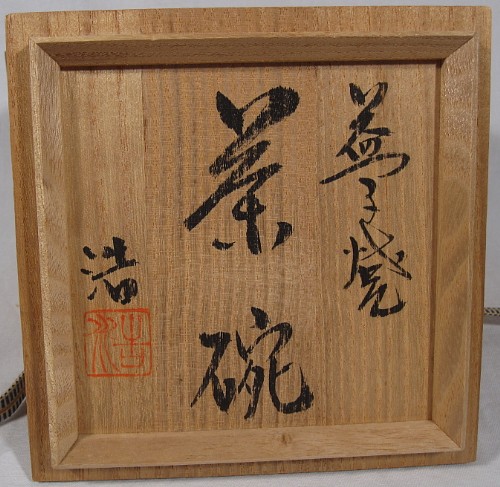 益子焼
茶碗
浩
浩